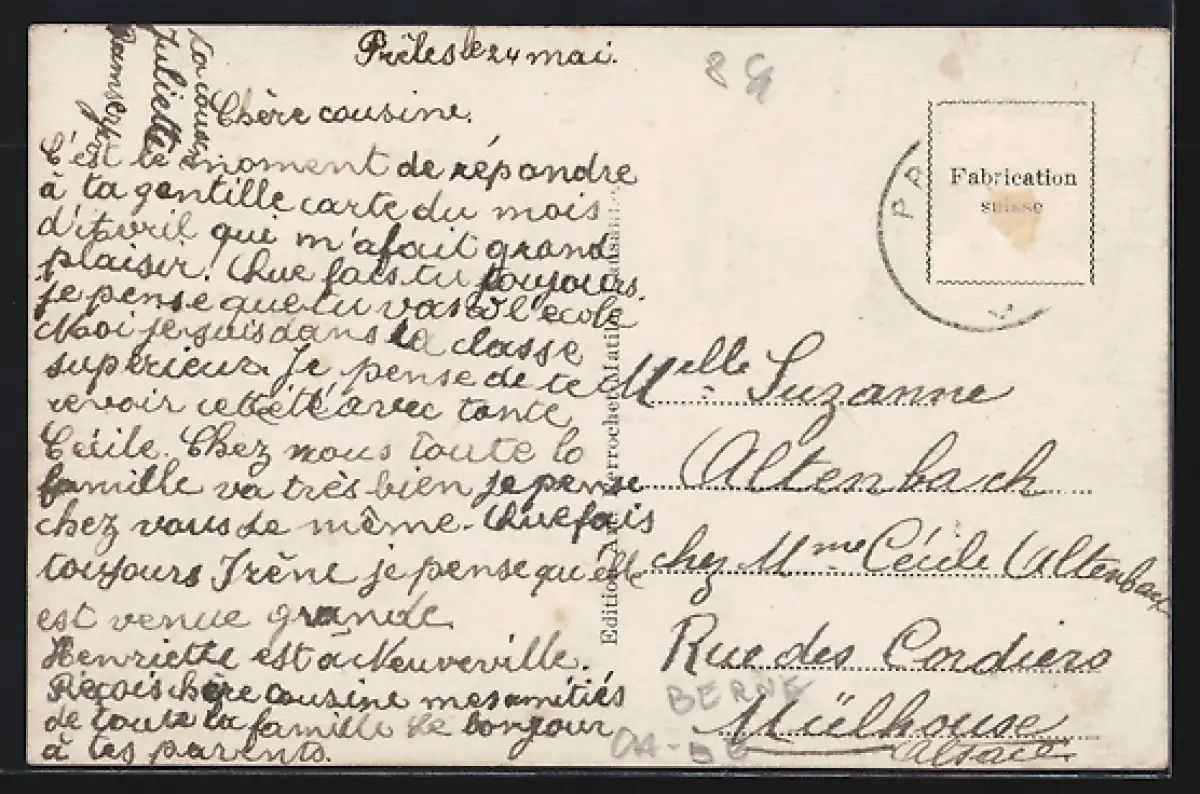 Prêles le 24 mai.
Chère cousine.
C'est le moment de répondre
à ta gentille carte du mois
d'Avril qui m'a fait grand
plaisir. Que fais tu toujours.
je pense que tu vas à l'école
Moi je suis dans la classe
supérieur. Je pense de te
revoir cette été avec tante
Cécile. Chez nous toute la
famille va très bien je pense
chez vous de même. Que fais
toujours Irène je pense qu'elle
est venue grande.
Henriette est à Neuveville.
Reçois chère cousine mes amitiés
de toute la famille le bonjour
à tes parents.
Ta cousine
Juliette
Fabrication
suisse
Melle Suzanne
Altenbach
chez Mme Cécile Altenbach
Rue des Cordiers
Mülhouse
Alsace
BERNE
Edition